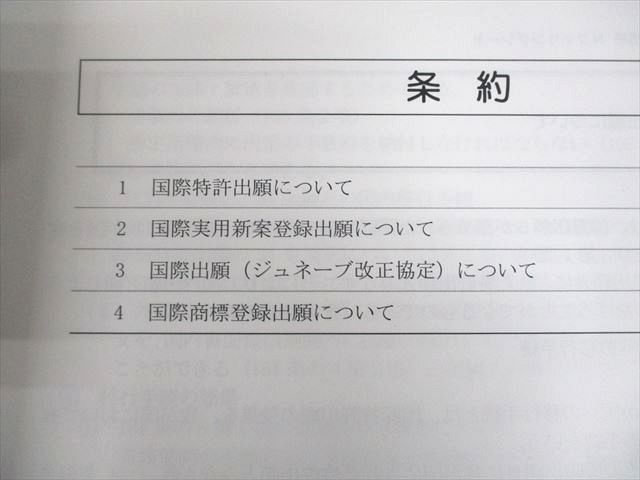 条 約
1 国際特許出願について
2 国際実用新案登録出願について
3 国際出願（ジュネーブ改正協定）について
4 国際商標登録出願について